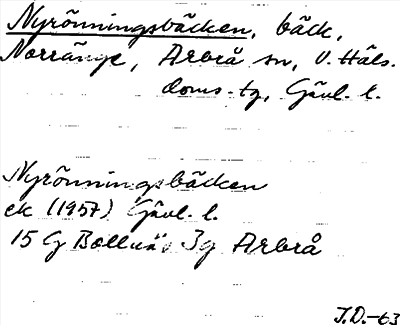 Nyrönningsbäcken, bäck,
Norränge, Arbrå sn, V. Häls.
doms. tg, Gävl. l.
Nyrönningsbäcken
ek (1957) Gävl. l.
15 G Bollnäs 3g Arbrå
J.D.-63